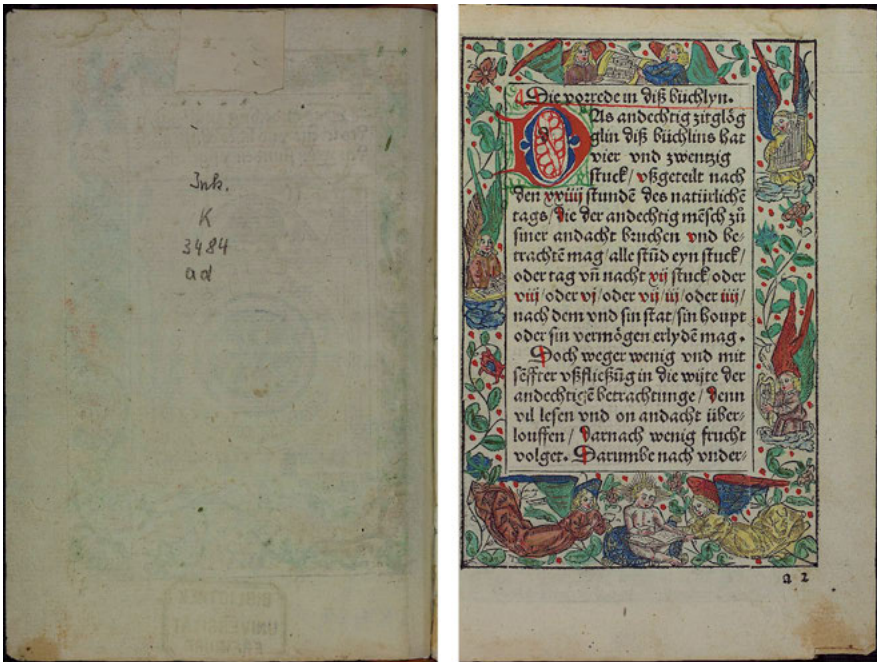 Ink.
K
3484
ad
Die vorrede in diß büchlyn.
DAs andechtig zitglög
glin diß büchlins hat
vier vnd zwentzig
stuck / vßgeteilt nach
den xxiiij stundē des natürlichē
tags / die der andechtig mēsch zů
siner andacht bruchen vnd be-
trachtē mag / alle stūd eyn stuck /
oder tag vn̄ nacht xij stuck oder
viij / oder vj / oder vij / iij / oder iiij /
nach dem vnd sin stat / sin houpt
oder sin vermögen erlydē mag.
Doch weger wenig vnd mit
sēffter vßfließūg in die wijte der
andechtigē betrachtunge / denn
vil lesen vnd on andacht über-
louffen / darnach wenig frucht
volget. Darumbe nach vnder-
a 2
BIBLIOTHEK
UNIVERSITÄT